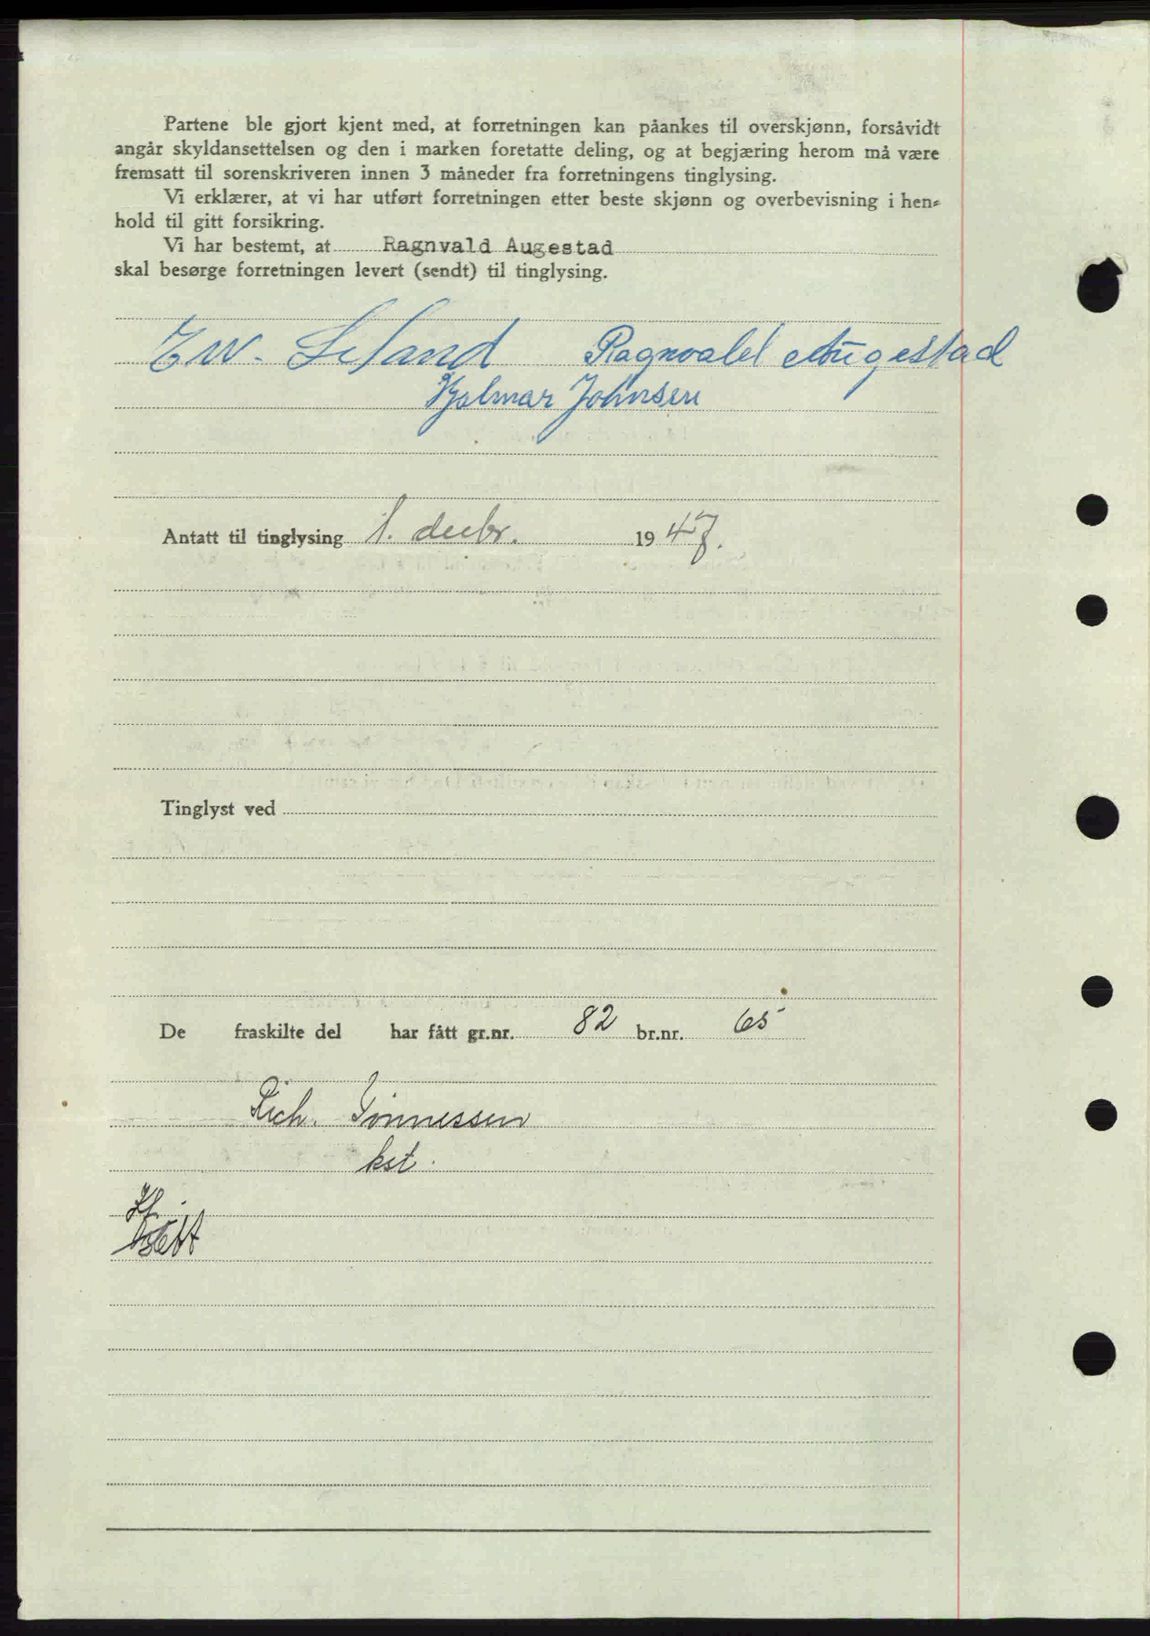 Partene ble gjort kjent med, at forretningen kan påankes til overskjønn, forsåvidt
angår skyldansettelsen og den i marken foretatte deling, og at begjæring herom må være
fremsatt til sorenskriveren innen 3 måneder fra forretningens tinglysing.
Vi erklærer, at vi har utført forretningen etter beste skjønn og overbevisning i hen-
hold til gitt forsikring.
Vi har bestemt, at Ragnvald Augestad
skal besørge forretningen levert (sendt) til tinglysing.
Ew. Seland Ragnvald Augestad
Hjalmar Johnsen
Antatt til tinglysing 1. decbr. 1947.
Tinglyst ved
De fraskilte del har fått gr.nr. 82 br.nr. 65
Rich. Tønnessen
kst.